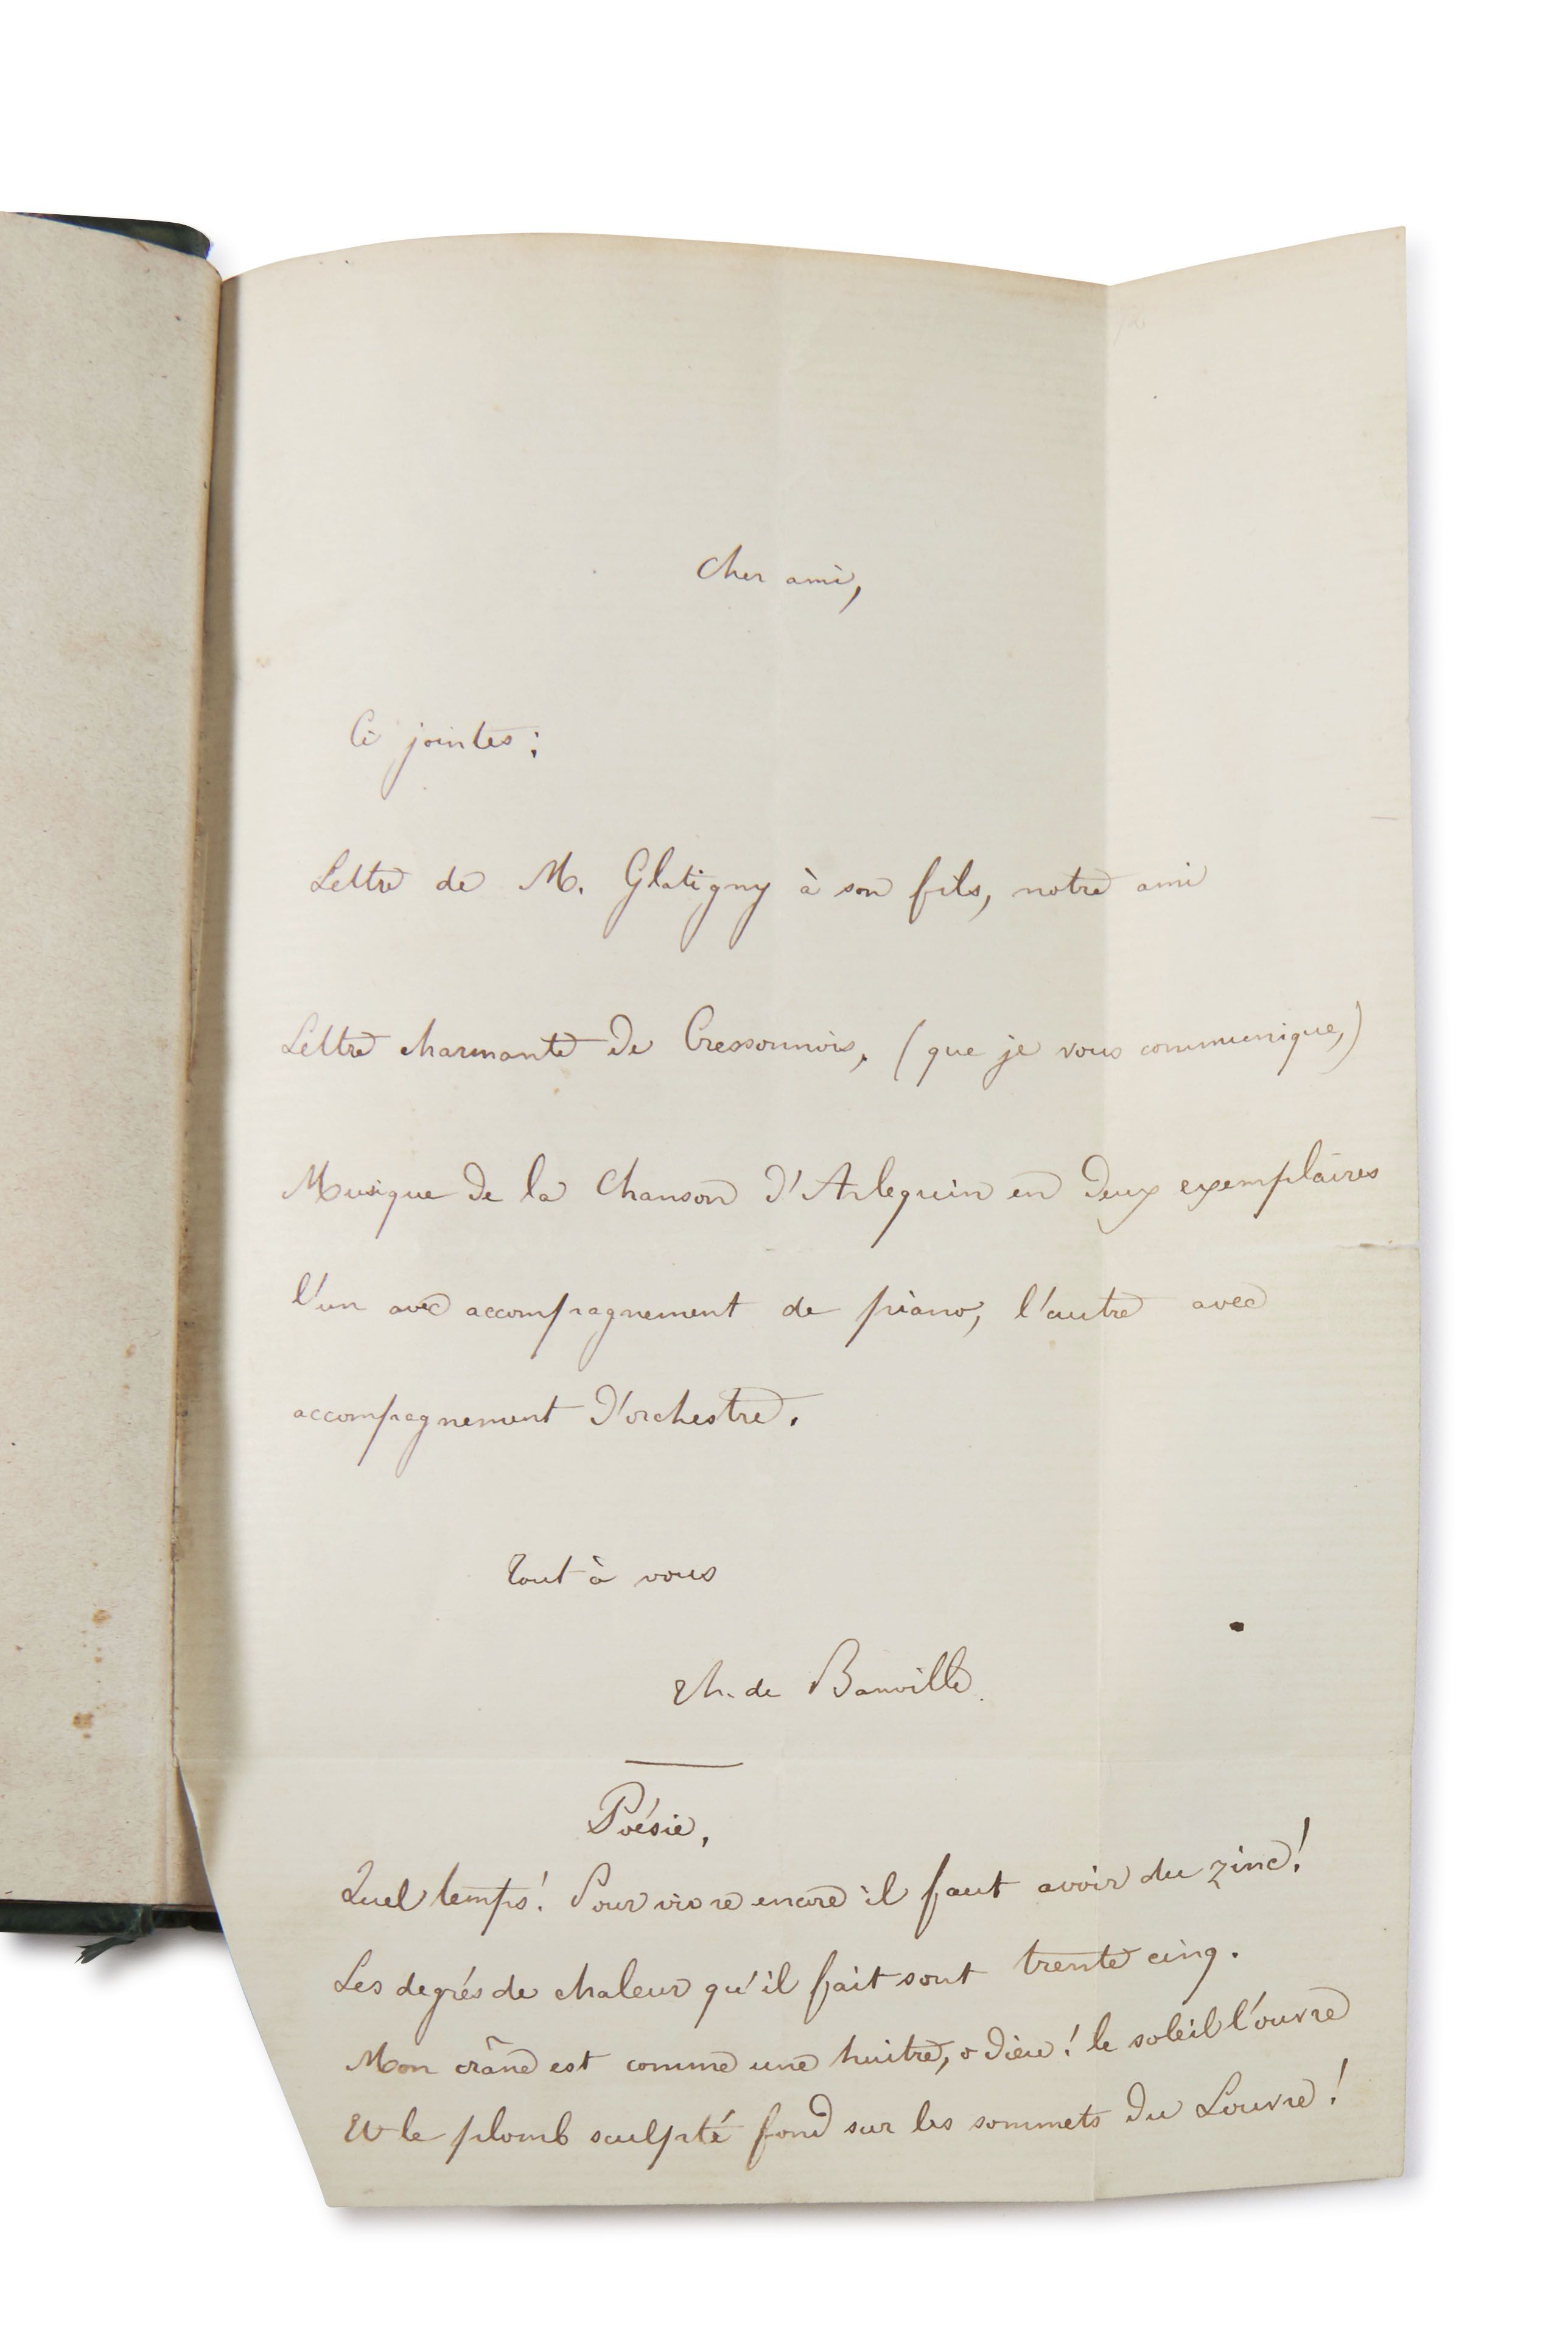 Cher ami,
Ci jointes :
Lettre de M. Glatigny à son fils, notre ami
Lettre charmante de Cressonnois, (que je vous communique,)
Musique de la Chanson d'Arlequin en deux exemplaires
l'un avec accompagnement de piano, l'autre avec
accompagnement d'orchestre.
Tout à vous
Th. de Banville.
Poésie,
Quel temps ! Pour vivre encore il faut avoir du zinc !
Les degrés de chaleur qu'il fait sont trente cinq.
Mon crâne est comme une huitre, o Dieu ! le soleil l'ouvre
Et le plomb sculpté fond sur les sommets du Louvre !